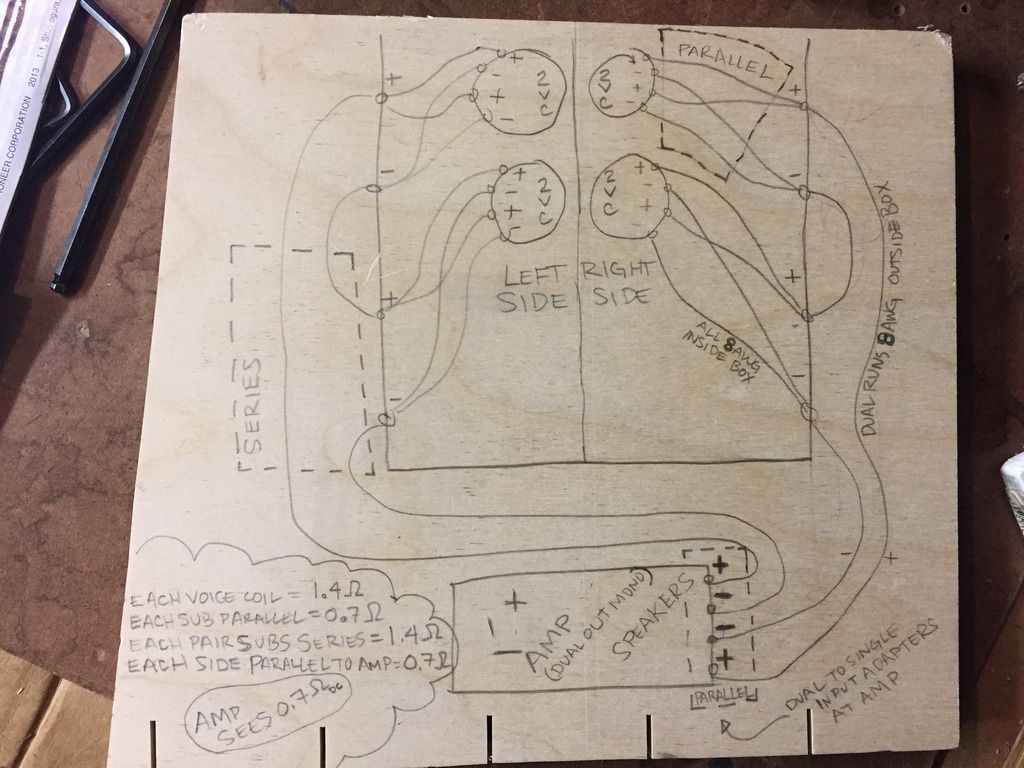 PIONEER CORPORATION 2013 1-1, Shin-ogura
PARALLEL
+
-
+
-
2
V
C
2
V
C
+
-
+
-
+
-
+
-
+
-
+
-
2
V
C
2
V
C
+
-
+
-
+
-
+
-
LEFT
SIDE
RIGHT
SIDE
SERIES
ALL 8 AWG
INSIDE
BOX
DUAL RUNS 8 AWG OUTSIDE BOX
- +
EACH VOICE COIL = 1.4Ω
EACH SUB PARALLEL = 0.7Ω
EACH PAIR SUBS SERIES = 1.4Ω
EACH SIDE PARALLEL TO AMP = 0.7Ω
AMP
SEES 0.7Ω DC
+
-
AMP
(DUAL OUT MONO)
SPEAKERS
+
-
-
+
PARALLEL
DUAL TO SINGLE
INPUT ADAPTERS
AT AMP